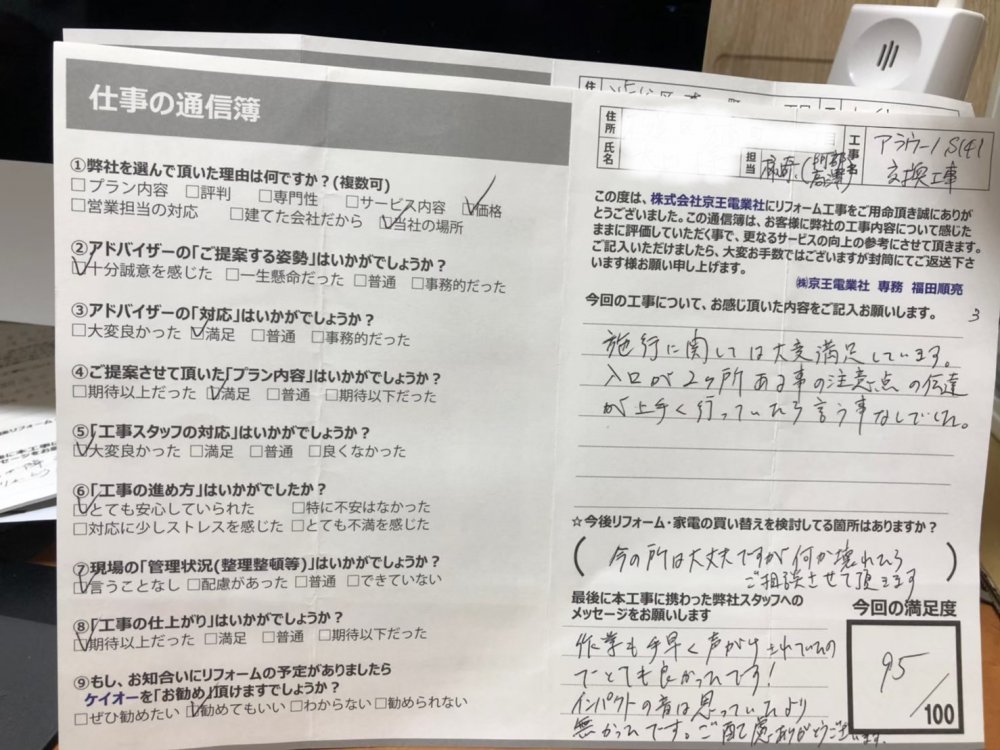 仕事の通信簿
①弊社を選んで頂いた理由は何ですか？(複数可)
□プラン内容 □評判 □専門性 □サービス内容 ☑価格
□営業担当の対応 □建てた会社だから ☑当社の場所
②アドバイザーの「ご提案する姿勢」はいかがでしょうか？
☑十分誠意を感じた □一生懸命だった □普通 □事務的だった
③アドバイザーの「対応」はいかがでしょうか？
□大変良かった ☑満足 □普通 □事務的だった
④ご提案させて頂いた「プラン内容」はいかがでしょうか？
□期待以上だった ☑満足 □普通 □期待以下だった
⑤「工事スタッフの対応」はいかがでしょうか？
☑大変良かった □満足 □普通 □良くなかった
⑥「工事の進め方」はいかがでしたか？
☑とても安心していられた □特に不安はなかった
□対応に少しストレスを感じた □とても不満を感じた
⑦現場の「管理状況(整理整頓等)」はいかがでしょうか？
☑言うことなし □配慮があった □普通 □できていない
⑧「工事の仕上がり」はいかがでしょうか？
☑期待以上だった □満足 □普通 □期待以下だった
⑨もし、お知合いにリフォームの予定がありましたら
ケイオーを「お勧め」頂けますでしょうか？
□ぜひ勧めたい ☑勧めてもいい □わからない □勧められない
住所
氏名
担当
工事名
アラウーノS141
交換工事
この度は、株式会社京王電業社にリフォーム工事をご用命頂き誠にありが
とうございました。この通信簿は、お客様に弊社の工事内容について感じた
ままに評価していただく事で、更なるサービスの向上の参考にさせて頂きます。
ご記入いただけましたら、大変お手数ではございますが封筒にてご返送下さ
います様お願い申し上げます。
㈱京王電業社 専務 福田順亮
今回の工事について、お感じ頂いた内容をご記入お願いします。
3
施行に関しては大変満足しています。
入口が2ヶ所ある事の注意点の伝達
が上手く行っていたら言う事なしでした。
☆今後リフォーム・家電の買い替えを検討してる箇所はありますか？
(今の所は大丈夫ですが何か壊れたら
ご相談させて頂きます)
最後に本工事に携わった弊社スタッフへの
メッセージをお願いします
作業も手早く声がけされていたの
でとても良かったです！
インパクトの音は思っていたより
無かったです。ご配慮ありがとうございます。
今回の満足度
95/100